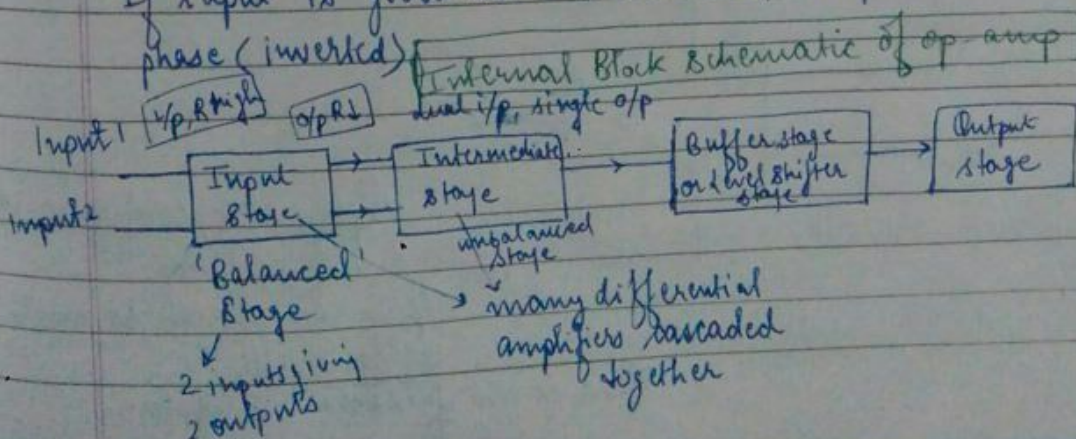 If input is
phase (inverted)
Internal Block Schematic of op amp
i/p, R high
o/p R↓
dual i/p, single o/p
Input 1
Input 2
Input
Stage
Intermediate
Stage
Buffer stage
or Level Shifter
Stage
Output
Stage
'Balanced'
Stage
2 inputs giving
2 outputs
unbalanced
Stage
many differential
amplifiers cascaded
together